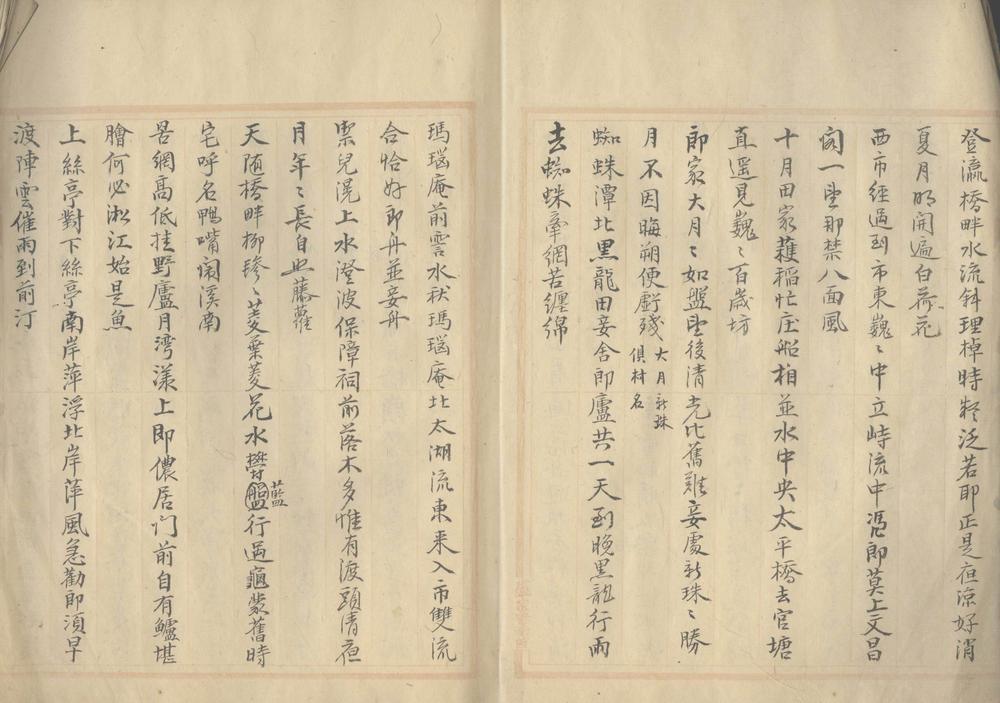 登瀛橋畔水流斜理棹時疑泛若耶正是夜涼好消
夏月明開遍白荷花
西市經過到市東巍〻中立峙流中馮郎莫上文昌
閣一望那禁八面風
十月田家穫稻忙庄船相並水中央太平橋去官塘
直遥見巍〻百歲坊
郎家大月〻如盤望後清光比舊難妾處新珠〻勝
月不因晦朔便虧殘 大月新珠
俱村名
蜘蛛潭北黑龍田妾舍郎廬共一天到晚黑龍行雨
去蜘蛛牽網苦纏綿
瑪瑙庵前霅水秋瑪瑙庵北太湖流東來入市雙流
合恰好郎舟並妾舟
禦兒滉上水澄波保障祠前落木多惟有渡頭情夜
月年〻長自照藤蘿
天随橋畔柳毿〻菱葉菱花水欝藍行過龜蒙舊時
宅呼名鴨嘴闹溪南
罟網高低挂野廬月湾漾上即儂居門前自有鱸堪
膾何必淞江始是魚
上絲亭對下絲亭南岸萍浮北岸萍風急勸郎須早
渡陣雲催雨到前汀